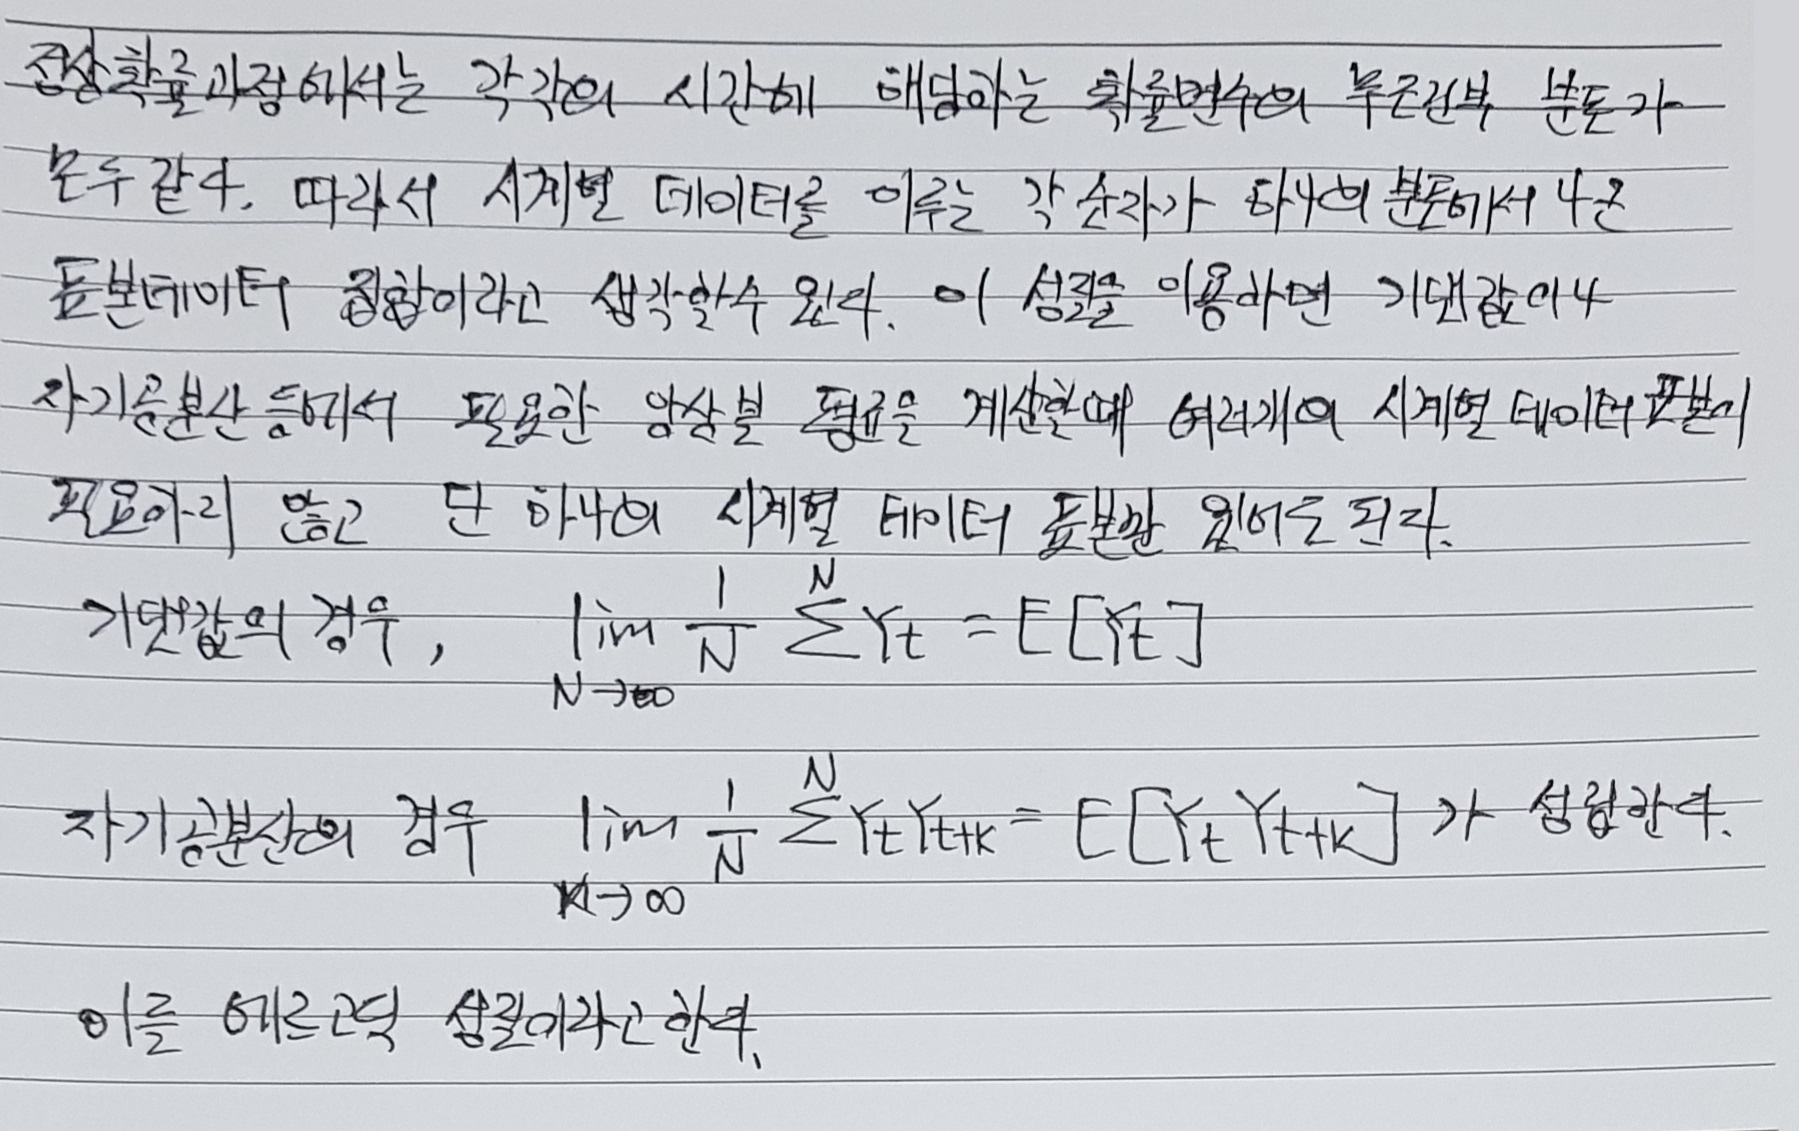 정상확률과정에서는 각각의 시간에 해당하는 확률변수의 무조건부 분포가
모두 같다. 따라서 시계열 데이터를 이루는 각 숫자가 하나의 분포에서 나온
표본데이터 집합이라고 생각할수 있다. 이 성질을 이용하면 기댓값이나
자기공분산 등에서 필요한 앙상블 평균을 계산할때 여러개의 시계열 데이터 표본이
필요하지 않고 단 하나의 시계열 데이터 표본만 있어도 된다.
기댓값의 경우, lim N→∞ 1/N Σ^N Y_t = E[Y_t]
자기공분산의 경우 lim N→∞ 1/N Σ^N Y_t Y_{t+k} = E[Y_t Y_{t+k}] 가 성립한다.
이를 에르고딕 성질이라고 한다.